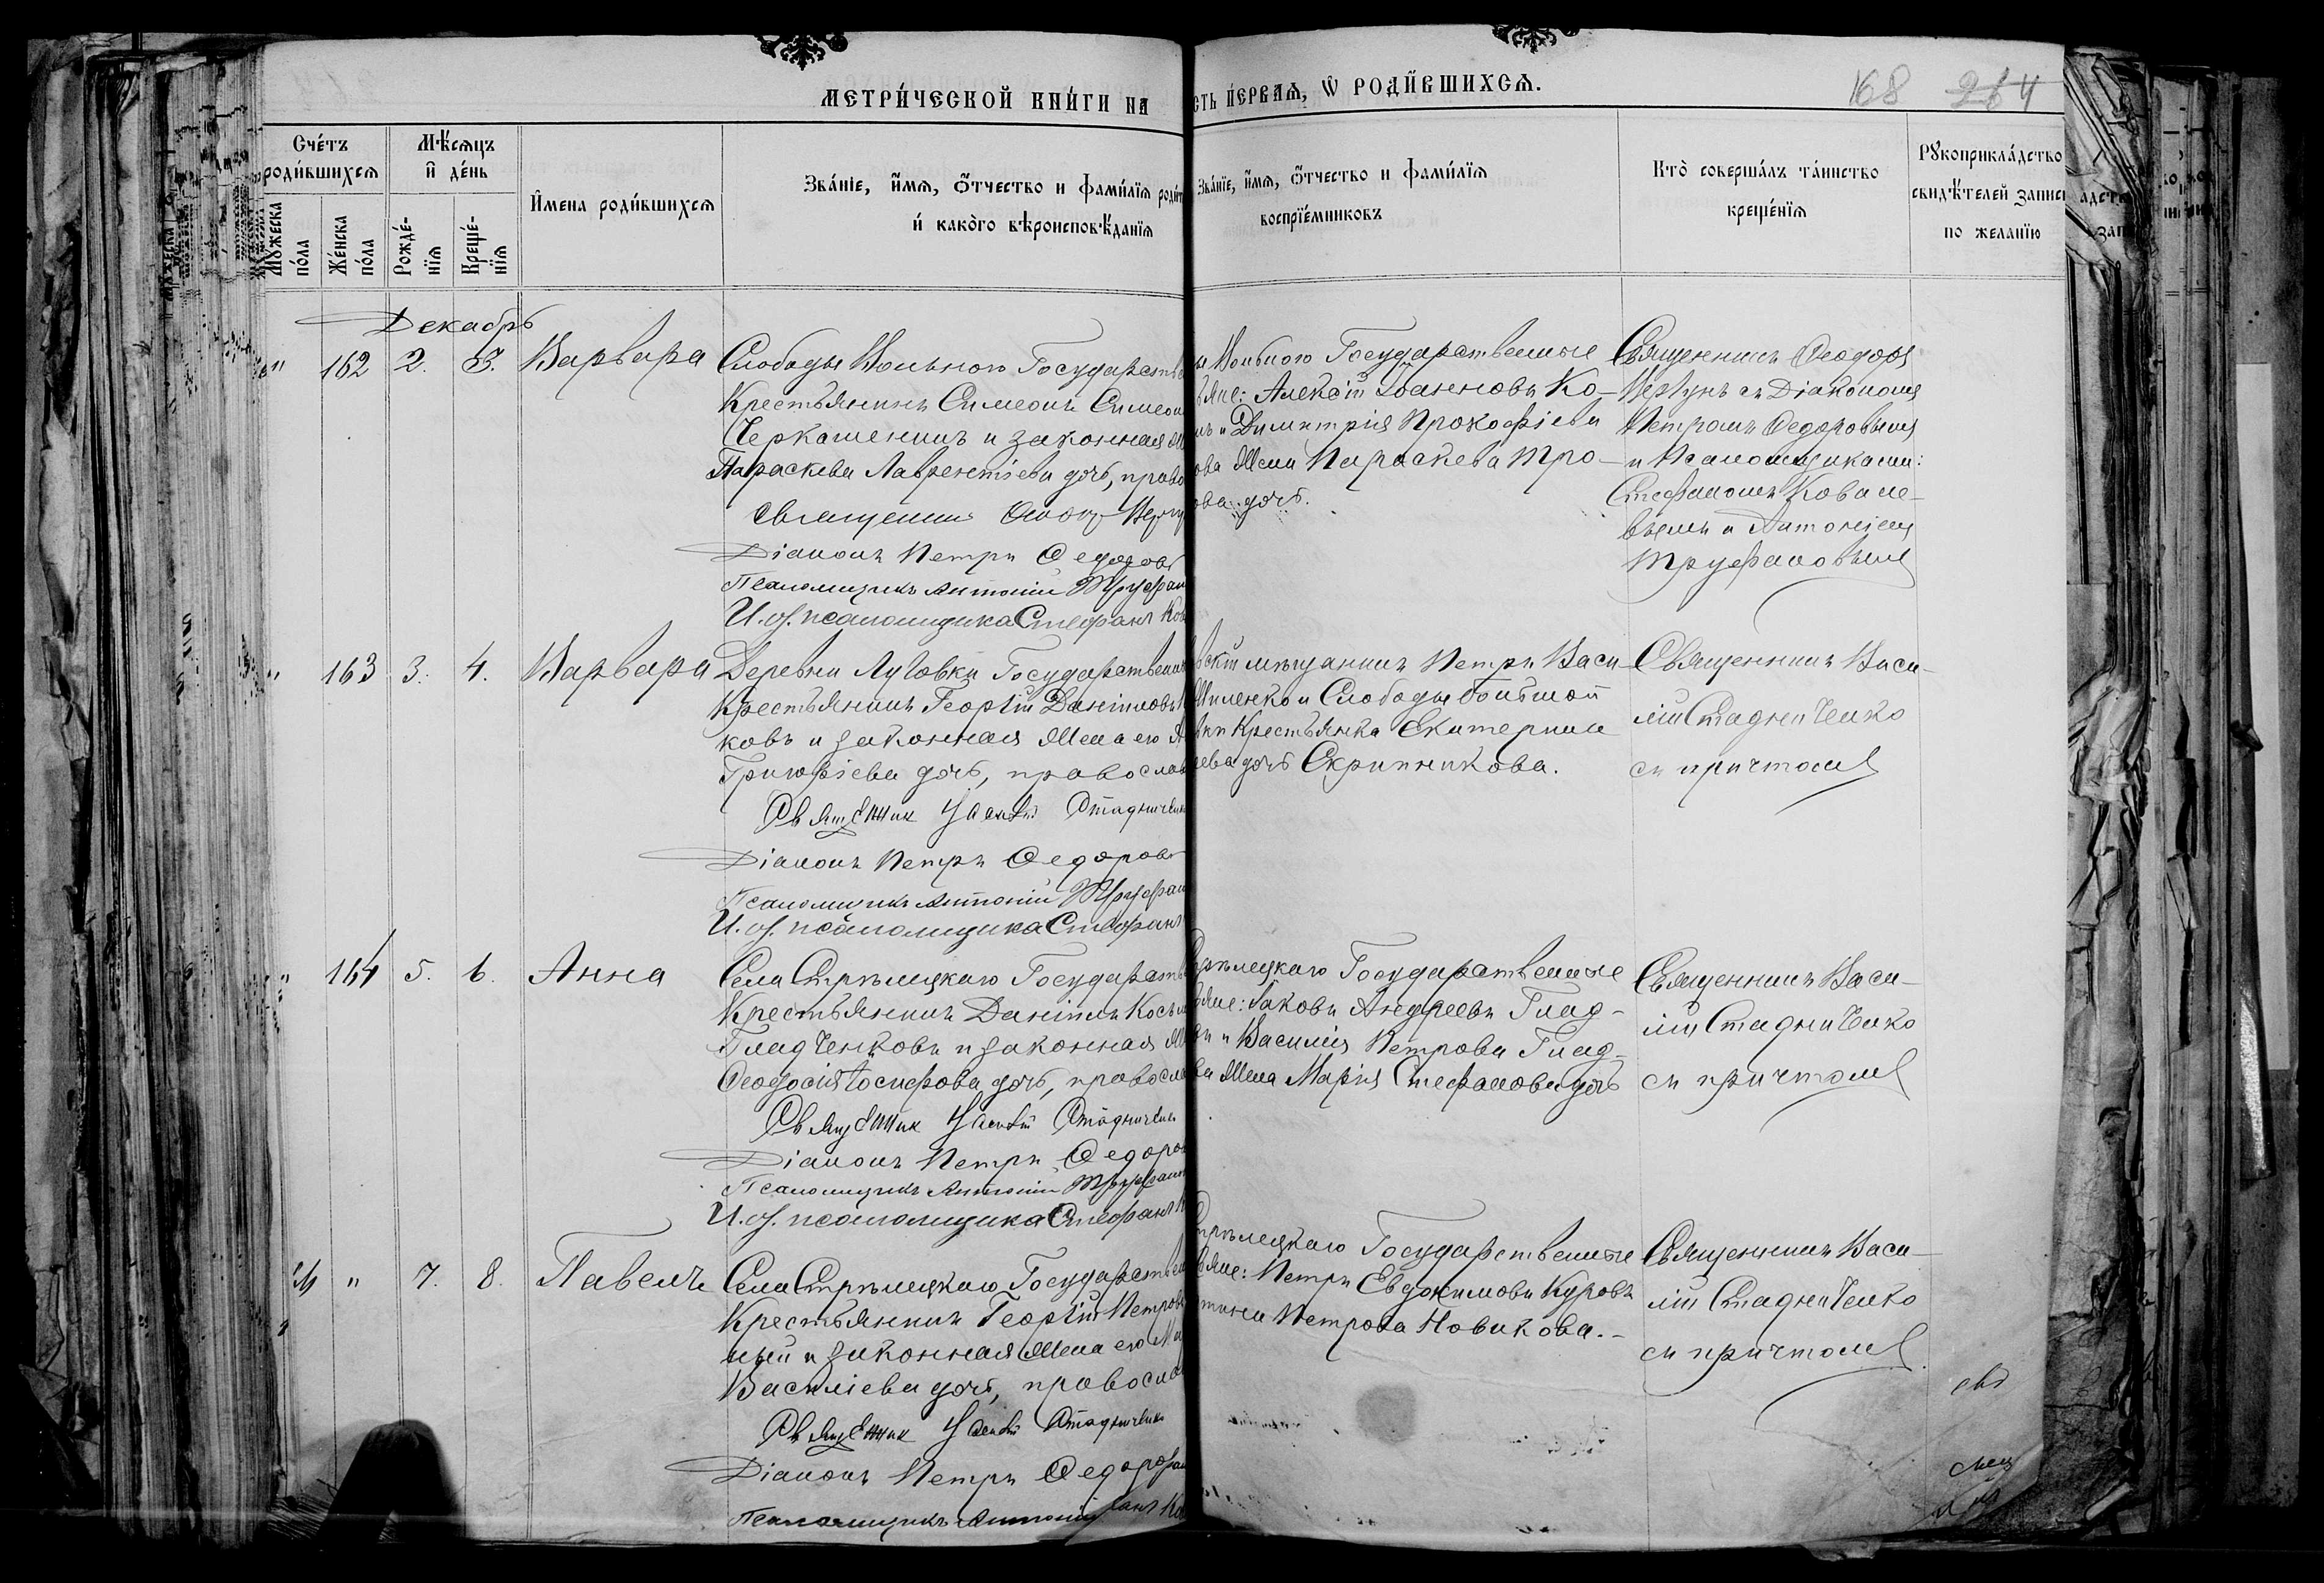 МЕТРИ́ЧЕСКОЙ КНИ́ГИ НА
СТЬ ПЕ́РВАѦ, Ѡ РОДИ́ВШИХСѦ.
168 264
Сче́тъ роди́вшихсѧ
Мꙋ́жеска по́ла
Же́нска по́ла
Мѣ́сѧцъ и де́нь
Рожде́-нїѧ
Креще́-нїѧ
И́мена роди́вшихсѧ
Зва́нїе, и́мѧ, ѻ́тчество и фами́лїѧ роди́т
и́ како́гѡ вѣроисповѣ́данїѧ
Зва́нїе, и́мѧ, ѻ́тчество и фами́лїѧ
воспрїе́мниковъ
Кто̀ соверша́лъ та́инство
креще́нїѧ
Рꙋкоприкла́дство
свидѣ́телей записи
по желанїю
Декабрь
" 162 2. 3. Варвара
Слободы Вольного Государстве
Крестьянинъ Симеонъ Симеон
Черкашенинъ и законная
Параскева Лаврентіева дочь, право
Священник Феодор Вергу
Діаконъ Петръ Федоров
Псаломщикъ Антоній Труфан
И. об. псаломщика Стефанъ Ков
Вольного Государственные
яне: Алексій Іоанновъ Ко-
и Димитрія Прокофіева
ова жена Параскева Тро-
ова дочь.
Священникъ Феодоръ
Вергунъ съ Діакономъ
Петромъ Федоровымъ
и Псаломщиками:
Стефаномъ Ковале-
вымъ и Антоніемъ
Труфановымъ
" 163 3. 4. Варвара
Деревни Луговки Государственн
Крестьянинъ Георгій Даніиловъ
ковъ и законная жена его
Григоріева дочь, православ
Священник Василій Стадниченко
Діаконъ Петръ Федоров
Псаломщикъ Антоній Труфан
И. об. псаломщика Стефанъ
вскій мѣщанинъ Петръ Васи-
Миленко и Слободы Большой
вки Крестьянка Екатерина
еева дочь Скрипникова.
Священникъ Васи-
лій Стадниченко
съ причтомъ
" 164 5. 6. Анна
Села Стрѣлецкаго Государств
Крестьянинъ Даніилъ Косьм
Гладченковъ и законная ж
Феодосія Іосифова дочь, правосла
Священник Василій Стадниченк
Діаконъ Петръ Федоров
Псаломщикъ Антоній Труфано
И. об. псаломщика Стефанъ К
Стрѣлецкаго Государственные
яне: Іаковъ Андреевъ Глад-
и Василія Петрова Глад-
ва жена Марія Стефанова дочь
Священникъ Васи-
лій Стадниченко
съ причтомъ
" 7. 8. Павелъ
Села Стрѣлецкаго Государствен
Крестьянинъ Георгій Петровъ
ный и законная жена его Ма
Василіева дочь, правосла
Священник Василій Стадниченко
Діаконъ Петръ Федоров
Псаломщикъ Антоній
Стрѣлецкаго Государственные
яне: Петръ Евдокимовъ Куровъ
Петрова Новикова.-
Священникъ Васи-
лій Стадниченко
съ причтомъ